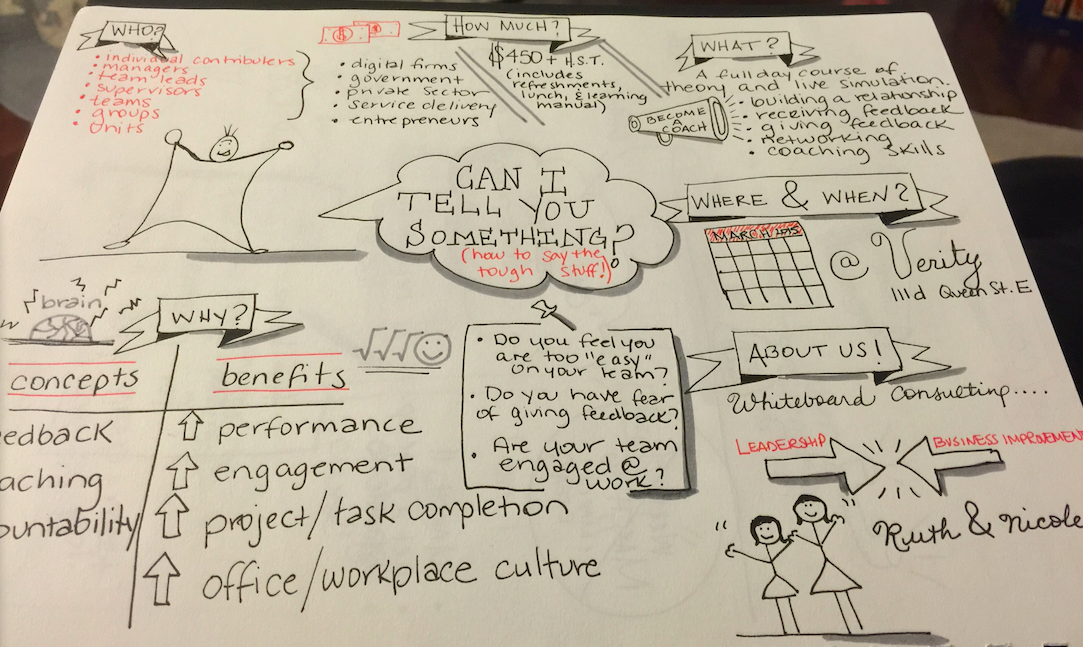 WHO?
• individual contributers
• managers
• team leads
• supervisors
• teams
• groups
• units
HOW MUCH?
• digital firms
• government
• private sector
• service delivery
• entrepreneurs
$450 + H.S.T.
(includes
refreshments,
lunch, & learning
manual)
WHAT?
A full day course of
theory and live simulation.
BECOME
A
COACH
• building a relationship
• receiving feedback
• giving feedback
• networking
• coaching skills
CAN I
TELL YOU
SOMETHING?
(how to say the
tough stuff!)
WHERE & WHEN?
MARCH 2015
@ Verity
111d Queen St. E
brain
WHY?
concepts
edback
aching
ountability
benefits
performance
engagement
project/task completion
office/workplace culture
• Do you feel you
are too "easy"
on your team?
• Do you have fear
of giving feedback?
• Are your team
engaged @
work?
ABOUT US!
Whiteboard Consulting....
LEADERSHIP
BUSINESS IMPROVEMENT
Ruth & Nicole